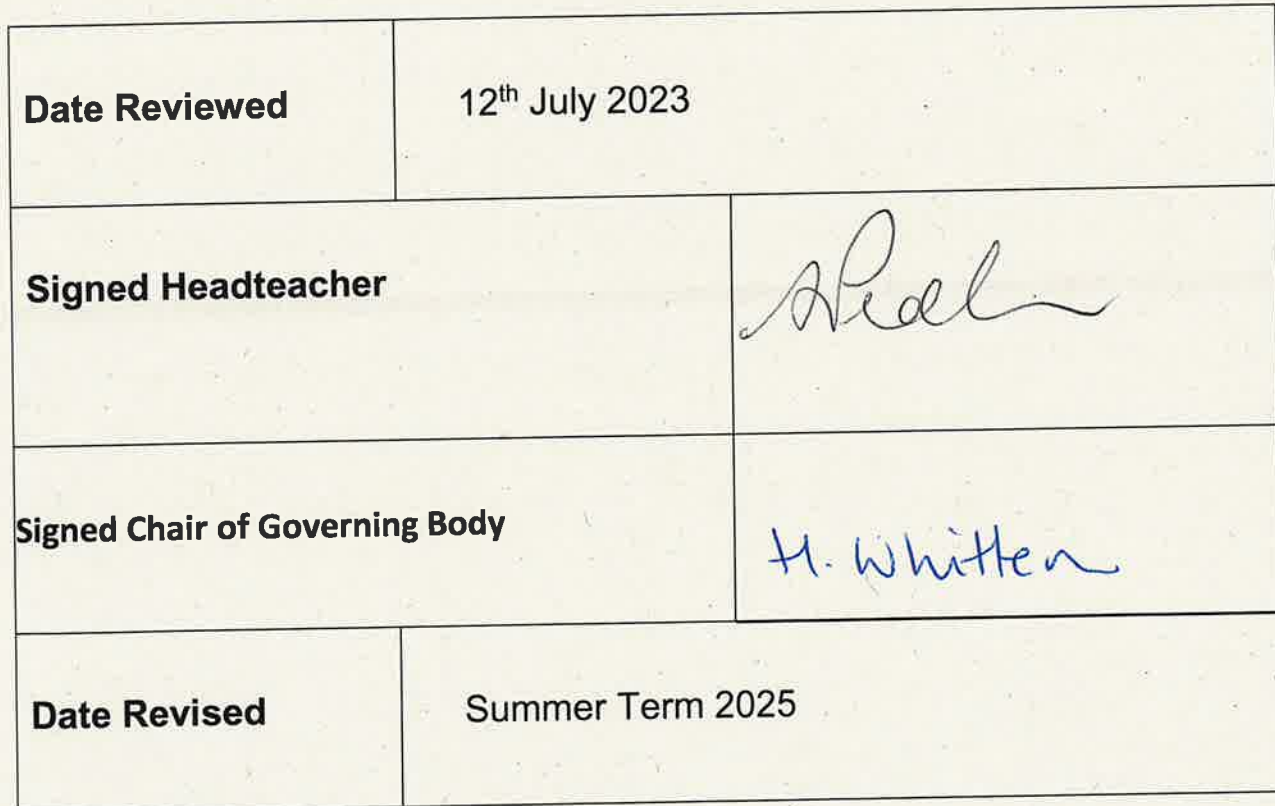 Date Reviewed
12th July 2023
Signed Headteacher
Signed Chair of Governing Body
H. Whitten
Date Revised
Summer Term 2025